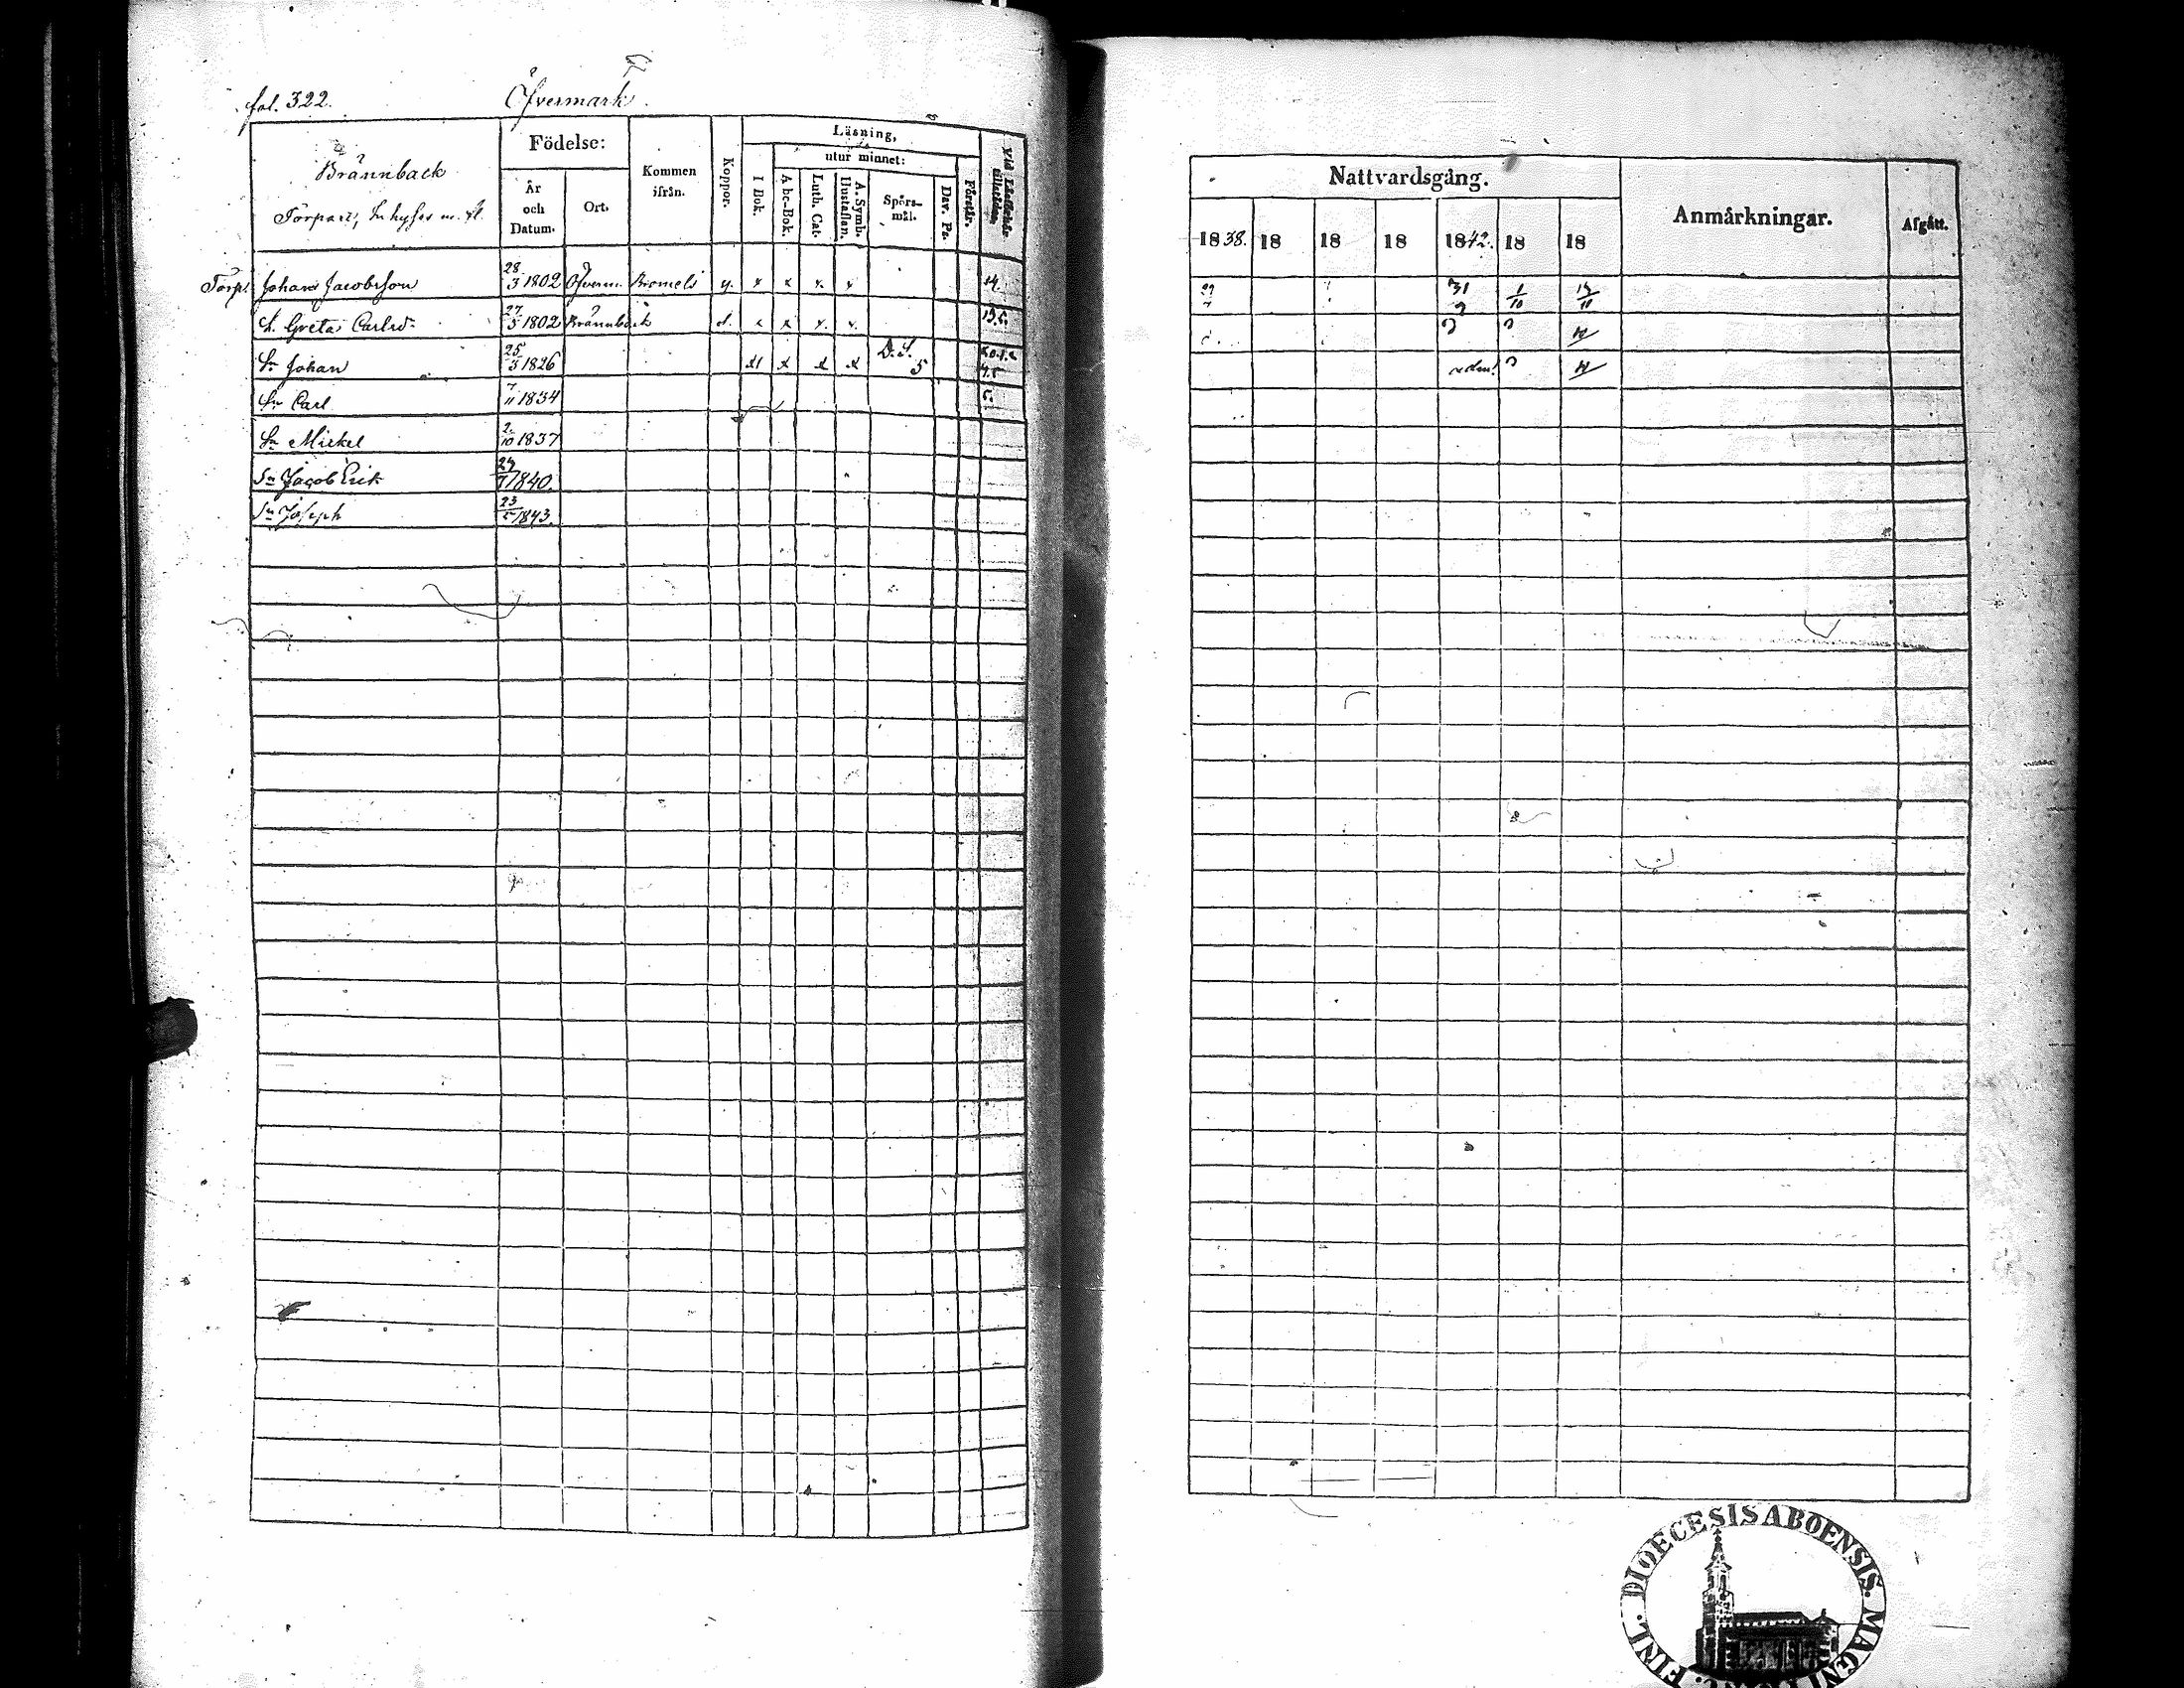 fol. 322. Öfvermark.
Brännback
Torpare, Inhyses m. fl.
Födelse:
År och Datum.
Ort.
Kommen ifrån.
Koppor.
Läsning,
I Bok.
utur minnet:
Abc-Bok.
Luth. Cat.
A. Symb. Hustaflan.
Spörs-mål.
Dav. Ps.
Förstår.
Torp. Johan Jacobsson 28/3 1802 Öfverm. x x x x 14.
h. Greta Carlsd: 27/5 1802 Brännback x x x x
Sn Johan 25/3 1826 x x x D.S. 5
Sn Carl 7/11 1834 5.
Sn Mickel 2/10 1837
Sn Jacob Erik 24/7 1840.
Sn Joseph 23/5 1843.
Nattvardsgång.
1838. 18 18 18 1842. 18 18
Anmärkningar.
Afgått.
31 1/10
FINL. DIOECESIS ABOENSIS. MAGNI